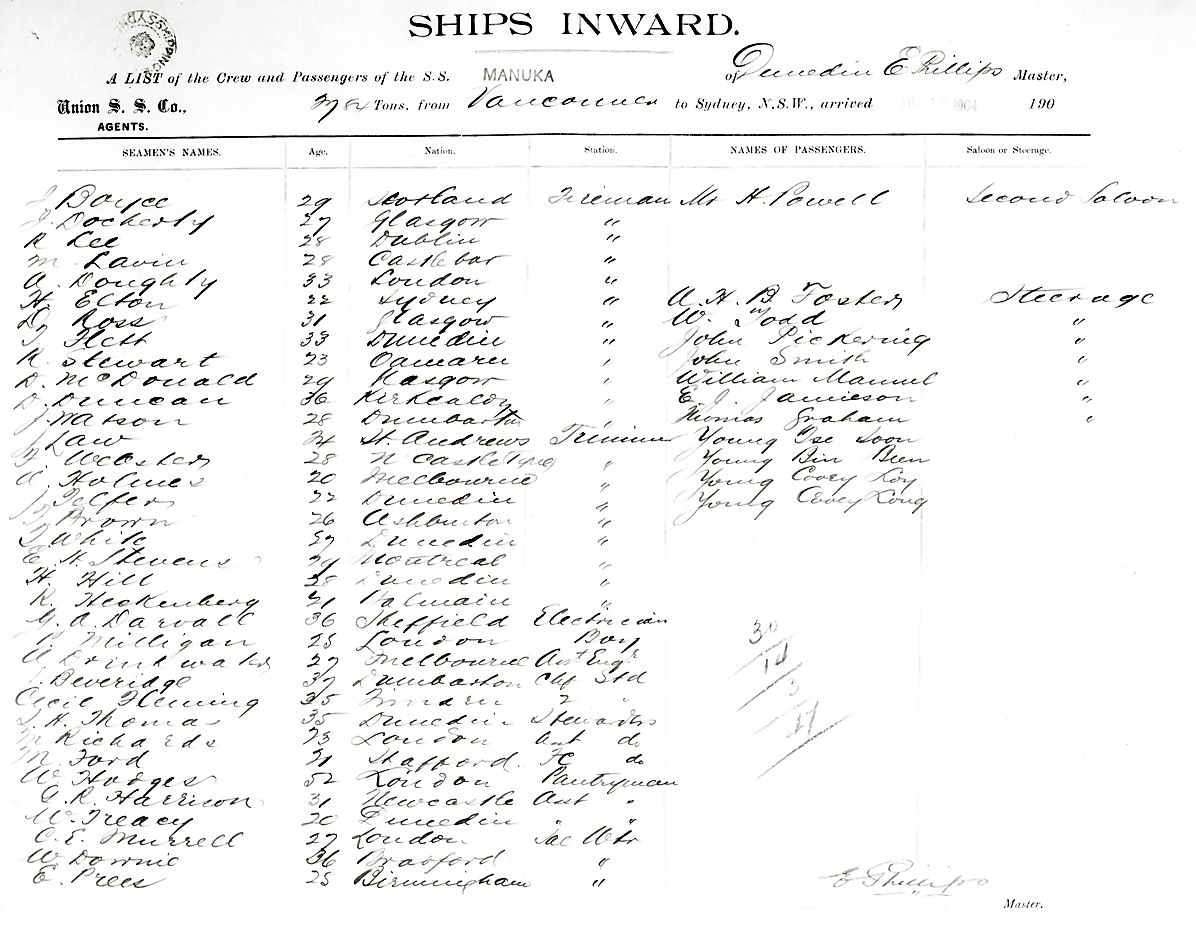 SHIPS INWARD.
A LIST of the Crew and Passengers of the S.S. MANUKA of Dunedin E Phillips Master,
Union S. S. Co., Tons, from Vancouver to Sydney, N.S.W., arrived 1904 190
AGENTS.
SEAMEN'S NAMES. Age. Nation. Station. NAMES OF PASSENGERS. Saloon or Steerage.
J. Boyce 29 Scotland Fireman Mr H. Powell Second Saloon
J. Docherty 27 Glasgow "
R Lee 28 Dublin "
M. Lavin 28 Castlebar "
A. Doughty 33 London "
H. Elton 22 Sydney " A. H. B. Foster Steerage
D. Ross 31 Glasgow " W. Todd "
T. Flett 33 Dunedin " John Pickering "
R. Stewart 23 Oamaru " John Smith "
D. McDonald 29 Glasgow " William Manuel "
D. Duncan 36 Kirkcaldy " E. J. Jamieson "
J. Watson 28 Dumbarton " Thomas Graham "
J. Law 24 St. Andrews Trimmer Young Ose Soon
Webster 28 N Castle Tyne " Young Bin Bien
A. Holmes 20 Melbourne " Young Covey Loy
J. Telfer 22 Dunedin " Young Covey Long
Brown 26 Ashburton "
T. White 27 Dunedin "
E. H. Stevens 29 Montreal "
H. Hill 28 Dunedin "
R. Heckenberg 21 Balmain "
G. A. Darvall 36 Sheffield Electrician
P. Milligan 25 London Boy 30
A. Drinkwater 27 Melbourne Ast Engr
J. Beveridge 37 Dumbarton Chf Std
Cecil Fleming 35 2 "
T. H. Thomas 35 Dunedin Stewardss
M. Richards 23 London Ast do
M. Ford 21 Stafford. FC do
W. Hodges 52 London Pantryman
G. R. Harrison 31 Newcastle Asst "
W. Treacy 20 Dunedin " "
C. E. Murrell 27 London Sal Wtr
W. Downie 36 Bradford "
E. Prees 25 Birmingham "
E Phillips
Master.